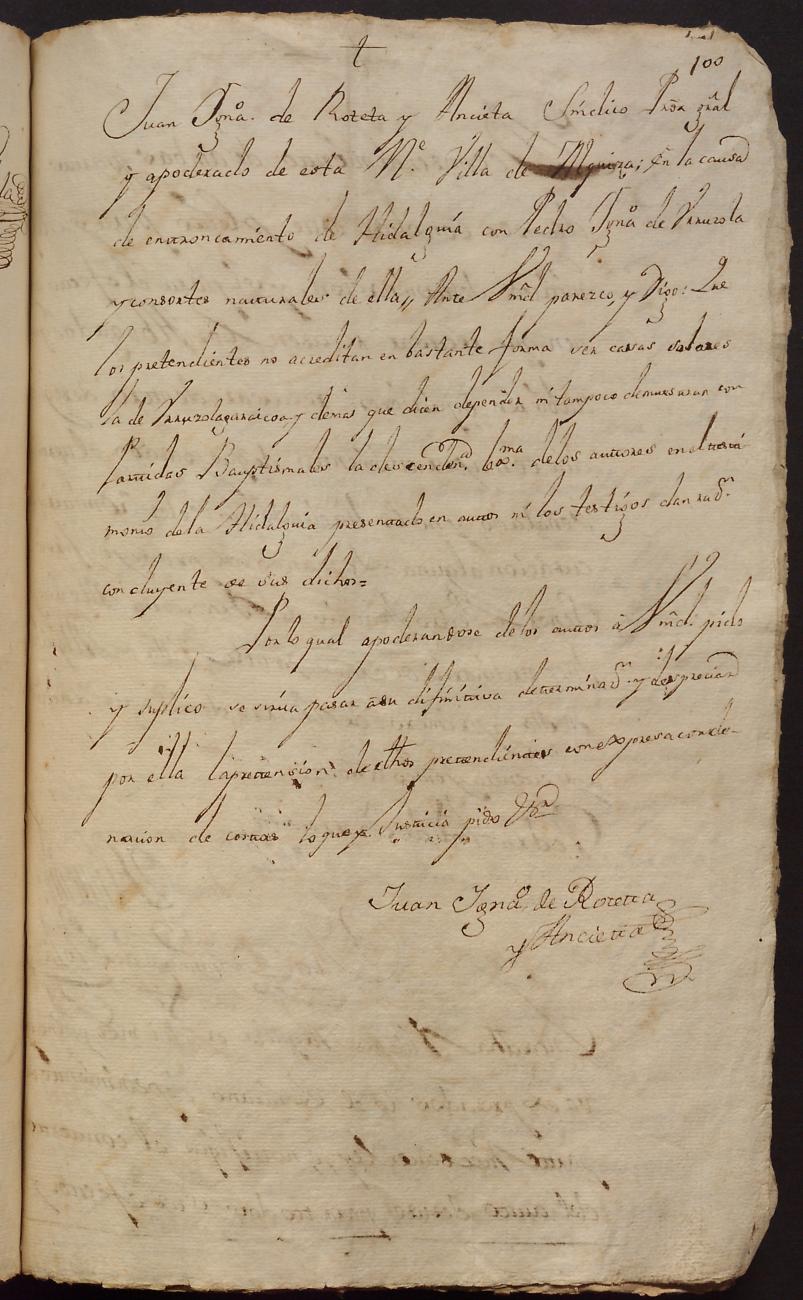 t
100
Juan Ygnº. de Roteta y Ancieta Sindico Pror gral
y apoderado de esta N.e Villa de ; en la causa
de entroncamiento de Hidalguia con Pedro Ygnº de Yrruzola
y consortes naturales de ella,, Ante Vmd parezco, y Digo: Que
los pretendientes no acreditan en bastante forma ser casas solares
la de Yrruzolagaraicoa y demas que dicen depender ni tampoco demuestran con
Partidas Baptismales la descenden.a de los autores en el testi-
monio de la Hidalguia presentado en autos ni los testigos dan raz.n
concluyente de sus dichos=
Por lo qual apoderandose de los autos â Vmd. pido
y suplico se sirva pasar a su difinitiva determinaz.n y despreciar
por ella la pretension de dhos pretendientes con expresa conde-
nacion de costas lo que es Justicia pido &a
Juan Ygnº. de Roteta
y Ancieta